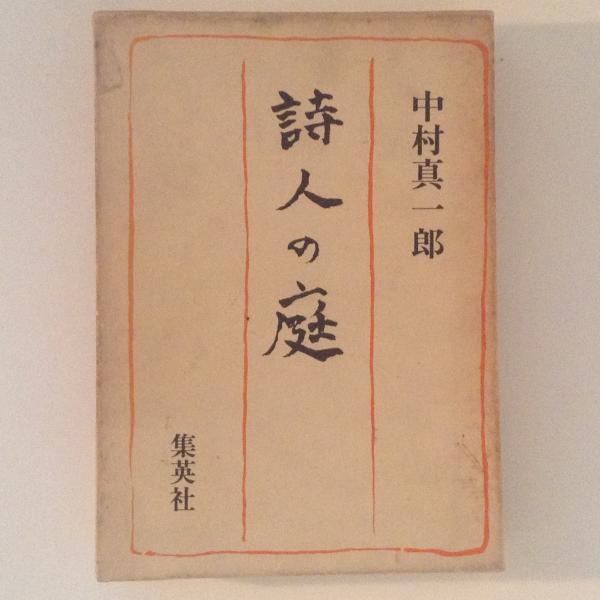 中村真一郎
詩人の庭
集英社